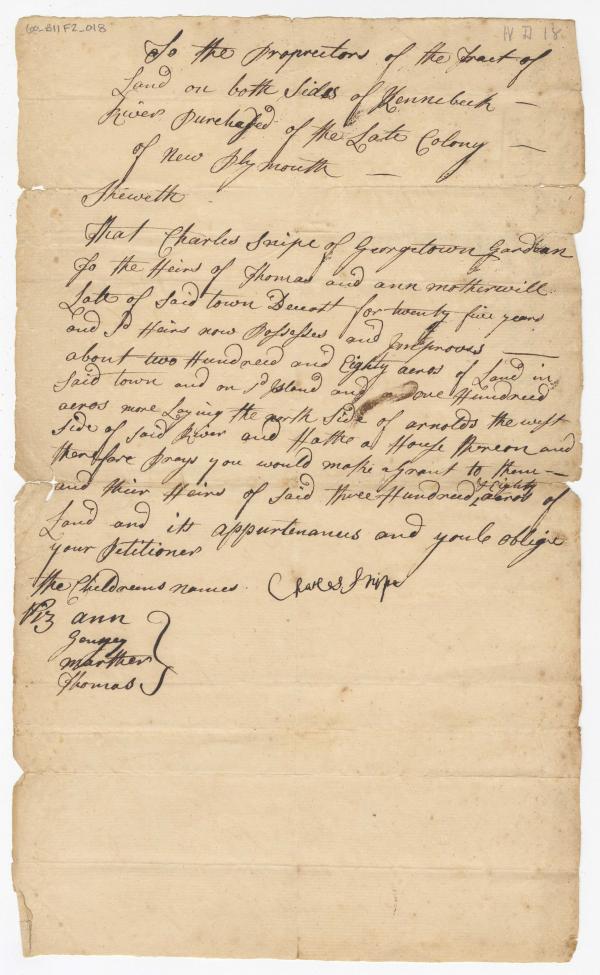 60-B11F2-018
IV D 18
To the Proprietors of the Tract of
Land on both Sides of Kennebeck —
River Purchased of the Late Colony —
of New Plymouth —
Sheweth
That Charles Snipe of Georgetown Gardian
To the Heirs of Thomas and ann motherwill
Late of Said town Decest for twenty five years
and Sd Heirs now Possesses and Improves —
about two Hundred and Eighty acros of Land in
Said town and on Sd Island and one Hundred
acros more Laying the north Side of arnolds the west
Side of Said River and Hathe a House thereon and
therefore Prays you would make a grant to them —
and their Heirs of Said three Hundred & Eighty acros of
Land and its appurtenances and youl oblige
your Petitioner
Charles Snipe
the Childrens names
Viz ann
marther
Thomas